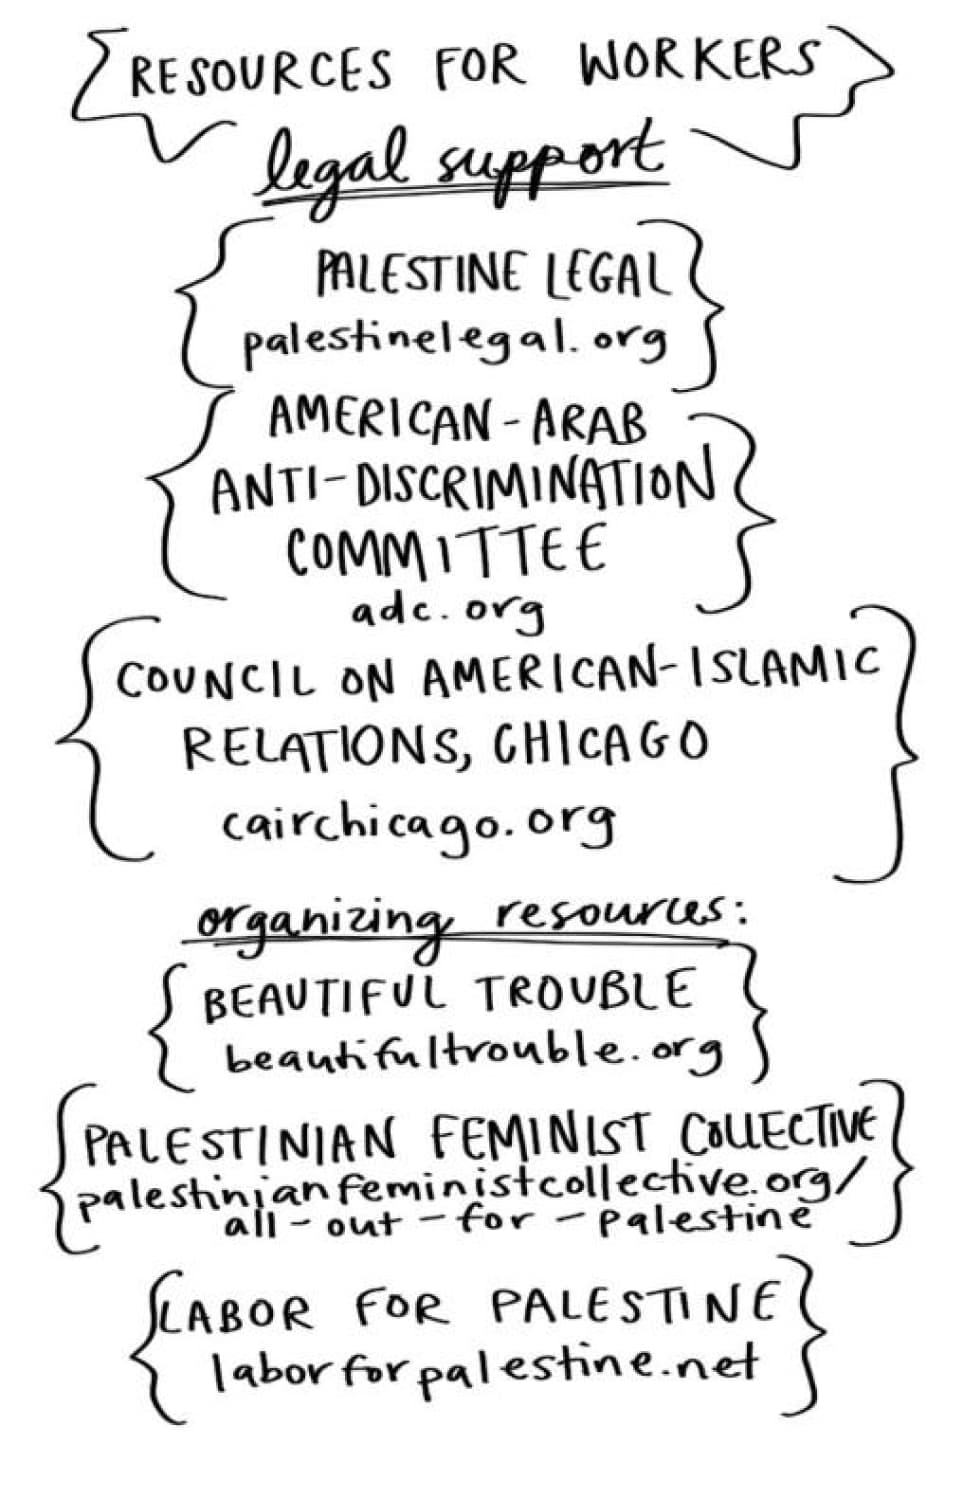 RESOURCES FOR WORKERS
legal support
PALESTINE LEGAL
palestinelegal.org
AMERICAN-ARAB
ANTI-DISCRIMINATION
COMMITTEE
adc.org
COUNCIL ON AMERICAN-ISLAMIC
RELATIONS, CHICAGO
cairchicago.org
organizing resources:
BEAUTIFUL TROUBLE
beautifultrouble.org
PALESTINIAN FEMINIST COLLECTIVE
palestinianfeministcollective.org/
all-out-for-palestine
LABOR FOR PALESTINE
laborforpalestine.net